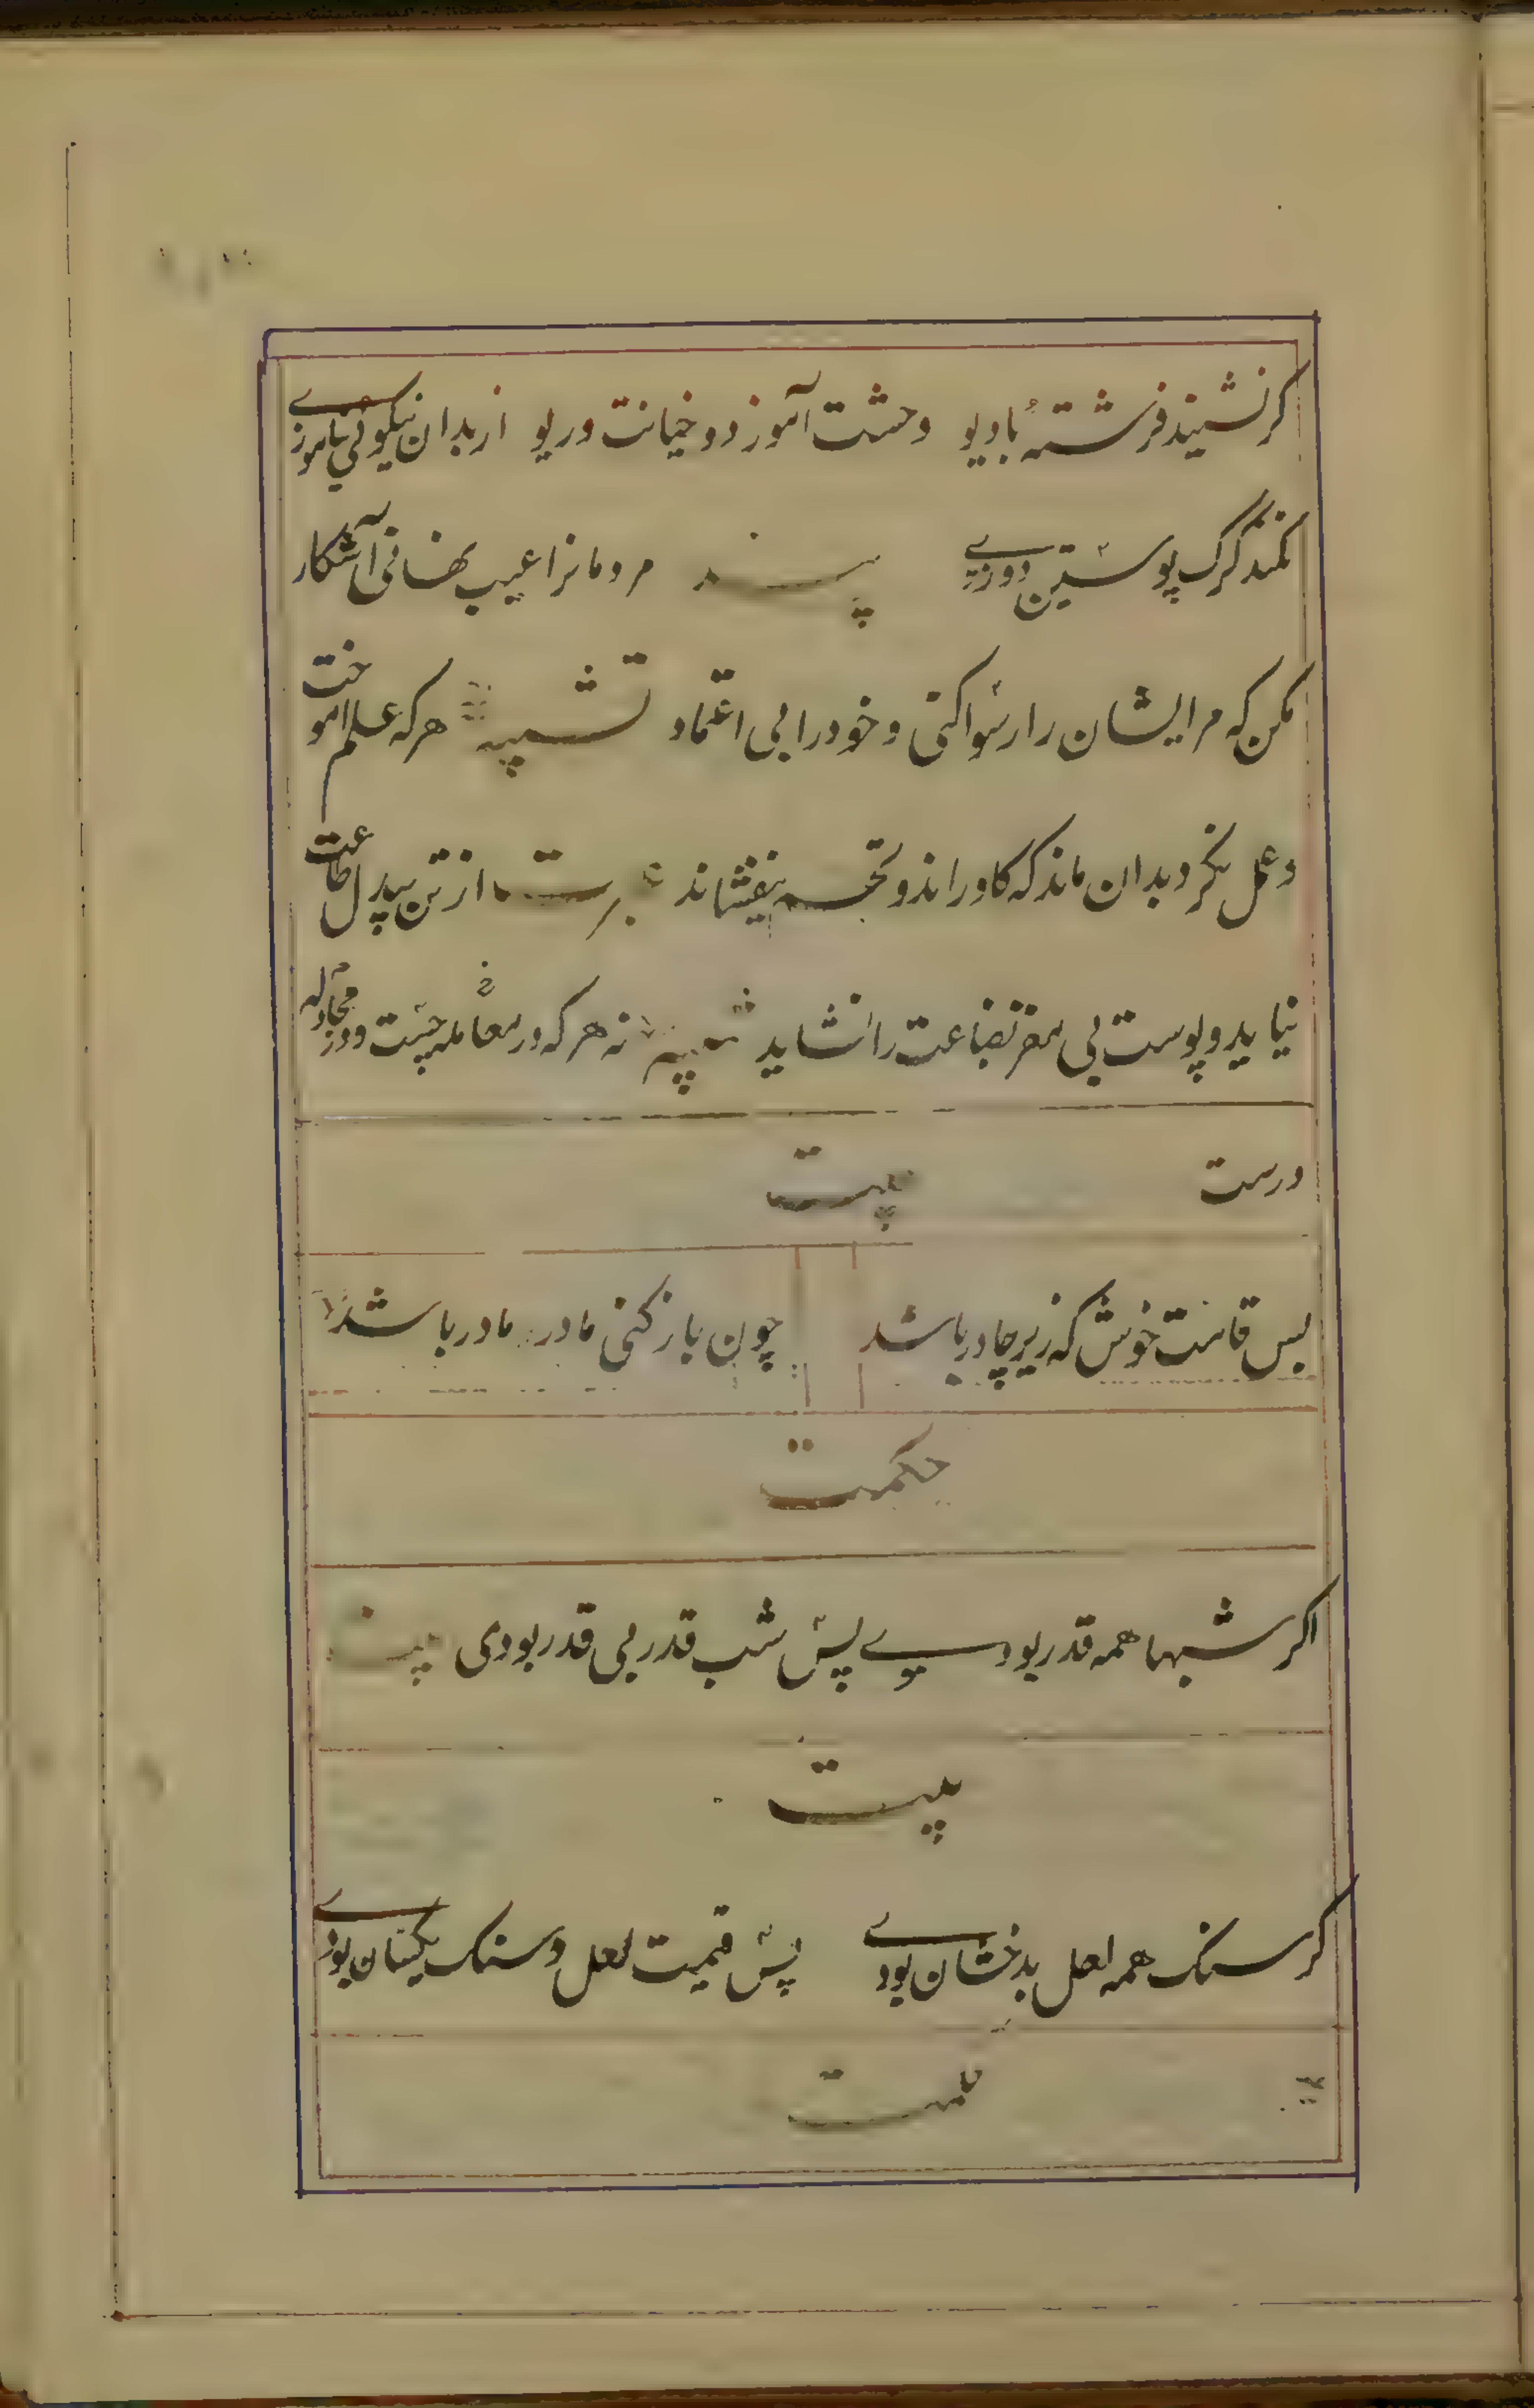 کر نشیند فرشتهٔ با دیو وحشت آموزد و خیانت و ریو از بدان نیکوئی نیاموزے
نکند گرگ پوستین دوزے پند مردمانرا عیب نهانی آشکار
مکن که مر ایشان را رسوا کنی و خود را بی اعتماد تشبیه هرکه علم اموخت
و عمل نکرد بدان ماند که کاو راند و تخم نیفشاند از تن بیدل طاعت
نیاید و پوست بی مغز بضاعت را نشاید نه هر که در معامله چست و در مجادله
درست بیت
بس قامت خوش که زیر چادر باشد چون باز کنی مادر مادر باشد
حکمت
اکر شبها همه قدر بودے پس شب قدر بی قدر بودی
بیت
کر سنک همه لعل بدخشان بودے پس قیمت لعل و سنک یکسان بودے